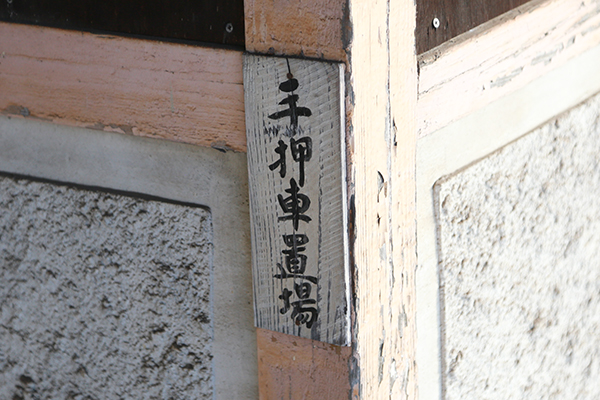 手押車置場